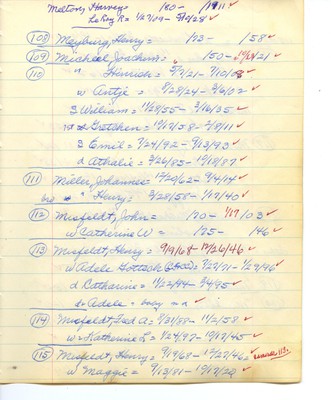 Meltons, Harvey 180 - /1911
LeRoy R = 1/27/09 - 5/12/28
108 Meyburg, Henry = /93 - /58
109 Micheel, Joachim = 150 - 21
110 " Hinrich = 5/9/21 - 7/10/03
w Antje = 9/28/24 - 3/6/02
S William = 11/28/55 - 3/16/35
d Gretchen = 10/17/58 - 2/8/11
S Emil = 7/24/92 - 9/13/93
d Athalie = 3/26/85 - 10/18/87
111 Miller, Johannes = 12/20/62 - 9/4/14
" Henry = 3/28/58 - 1/17/40
112 Misfeldt, John = 120 - 1/17/03
w Catherine W = /75 - /46
113 Misfeldt, Henry = 9/9/68 - 12/26/46
w Adele Gottsch = 2/22/71 - 1/29/46
d Catharine = 11/27/94 - 3/4/95
d = Adele = baby = n
114 Misfeldt, Fred A = 8/31/88 - 11/2/58
w = Katherine L = 1/24/97 - 12/17/45
115 Misfeldt, Henry = 9/19/68 - 12/27/46 Same as 113.
w Maggie = 9/13/81 - 12/17/20